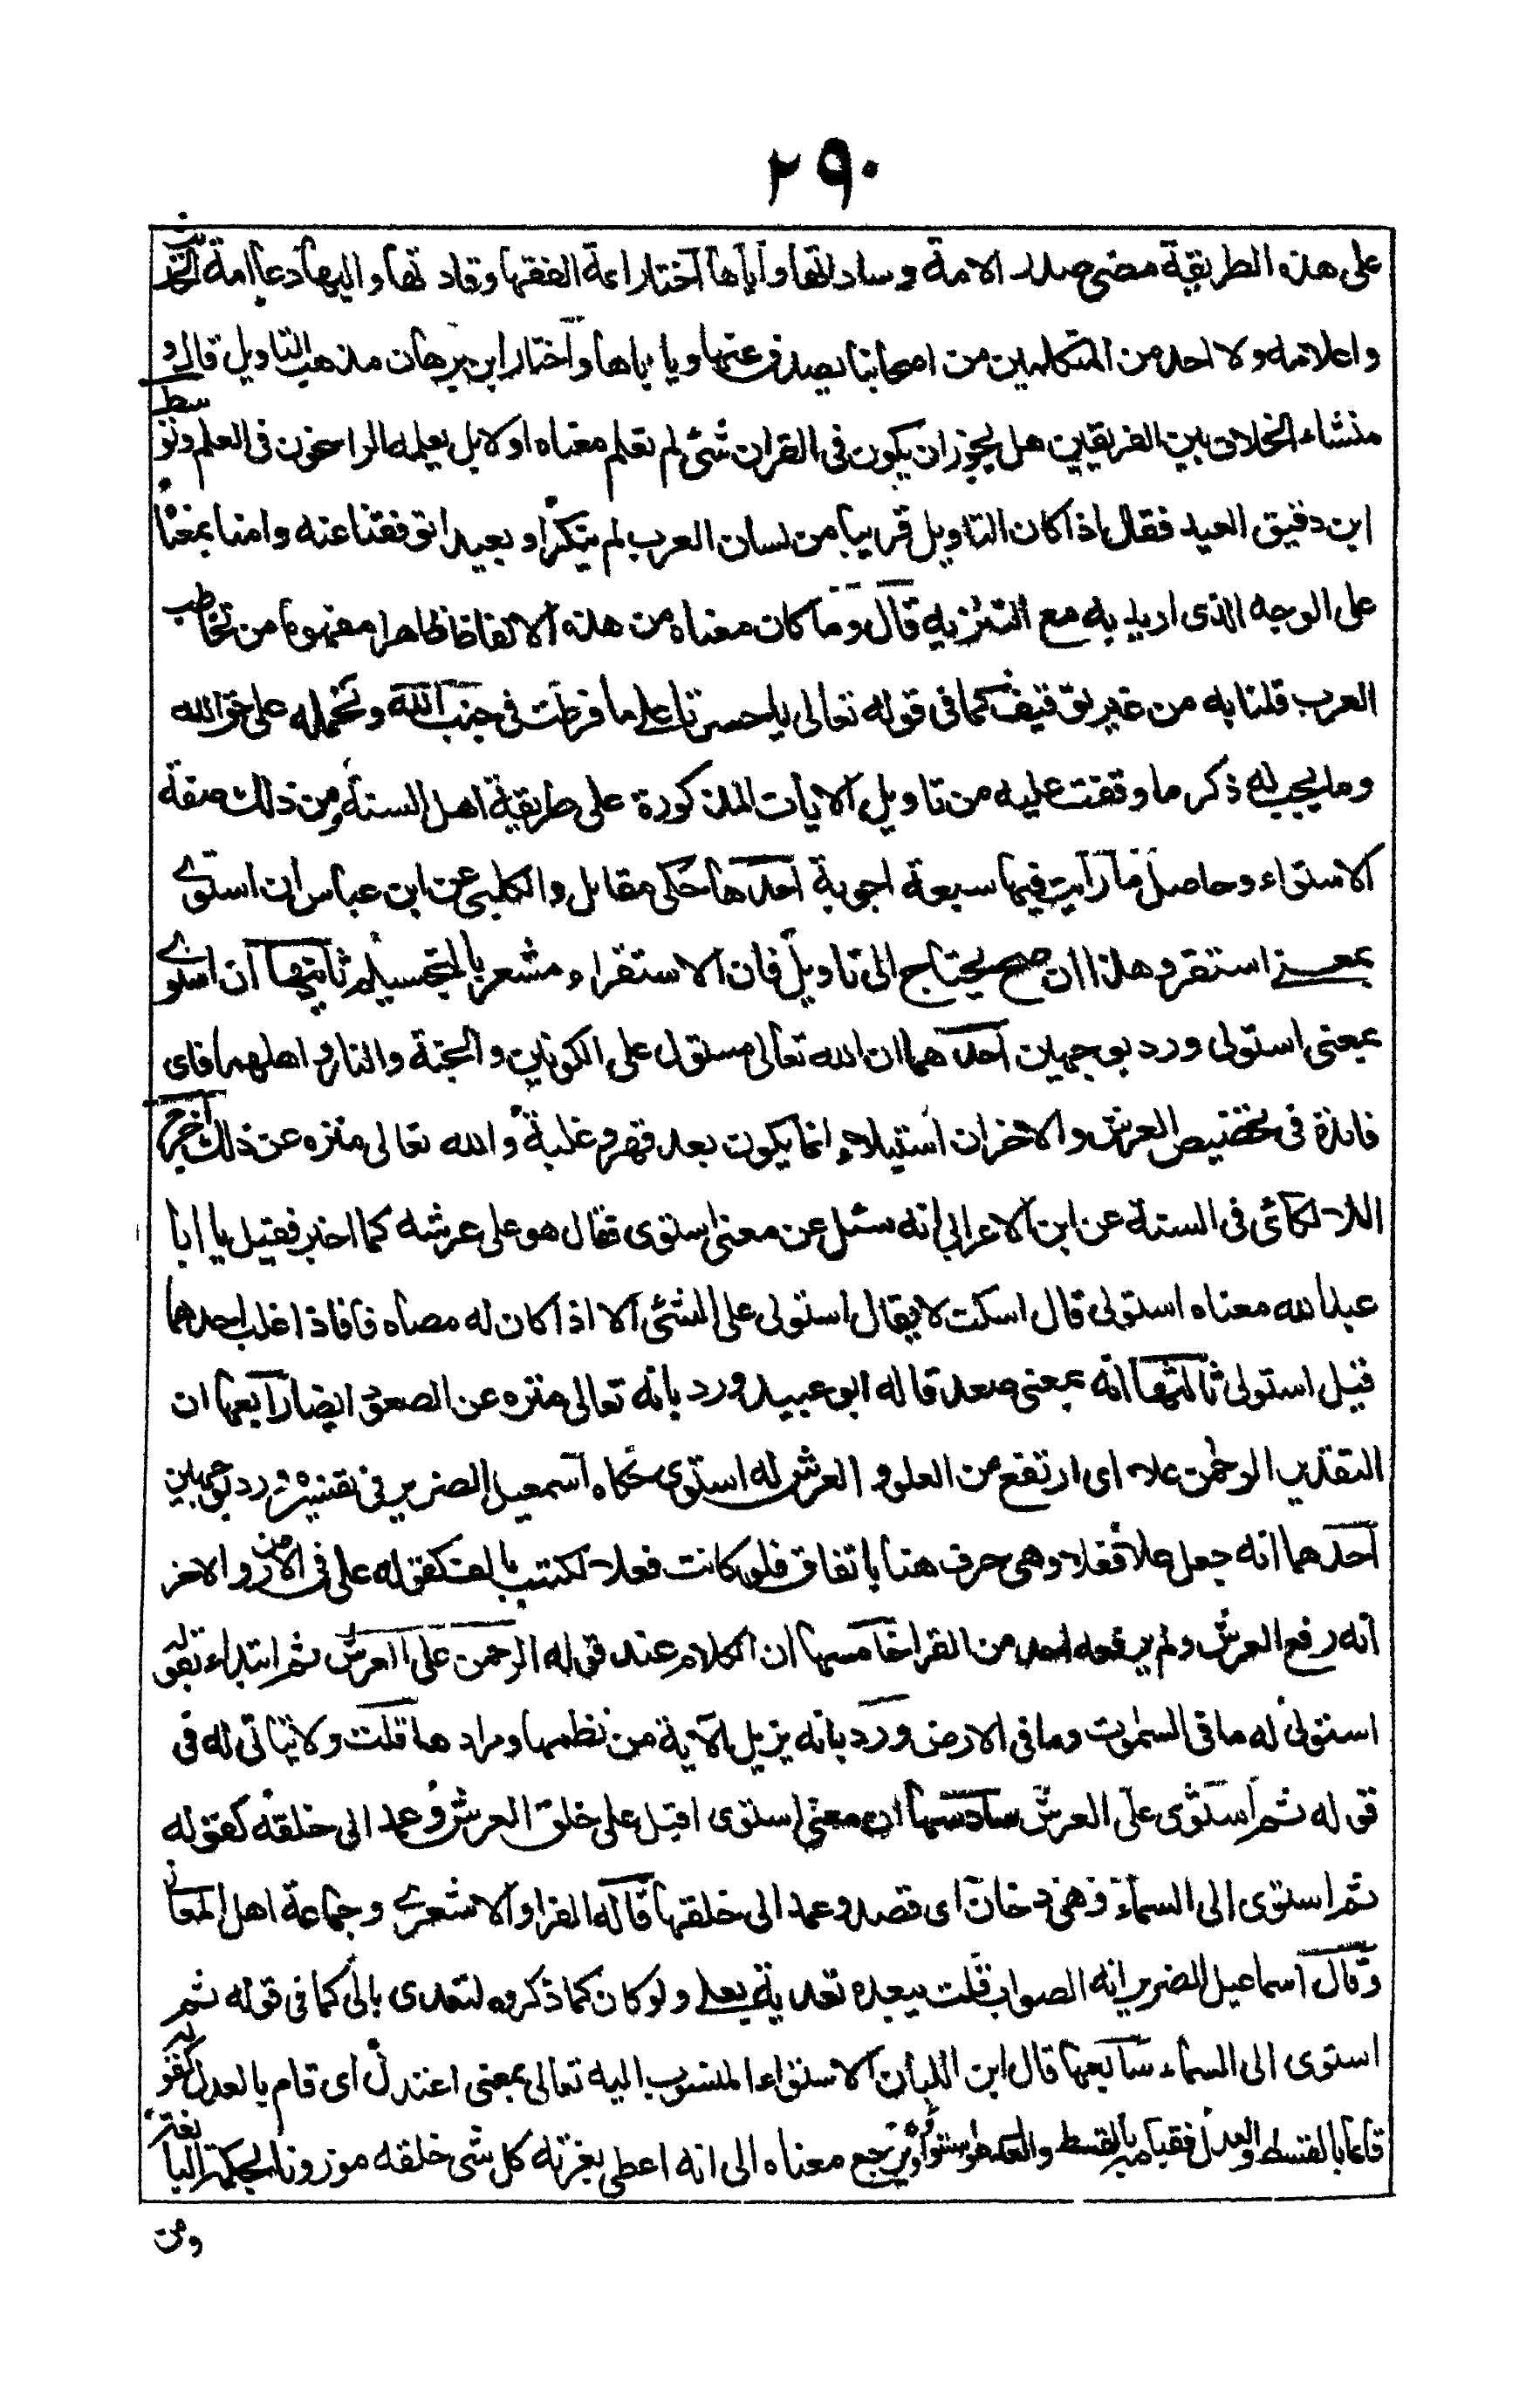 ٢٩٠
على هذه الطريقة مضى صدر الامة وساداتها واياها اختار ائمة الفقها وقادتها واليها دعا ائمة الحديث
واعلامه ولا احد من المتكلمين من اصحابنا يصدف عنها ويا باها واختار ابن برهان مذهب التاويل قال و
منشاء الخلاف بين الفريقين هل يجوز ان يكون في القران شئ لم نعلم معناه او لا بل يعلمه الراسخون في العلم وتوسط
ابن دقيق العيد فقال اذا كان التاويل قريبا من لسان العرب لم ينكر او بعيدا توقفنا عنه وامنا بمعناه
على الوجه الذى اريد به مع التنزيه قال وما كان معناه من هذه الالفاظ ظاهرا مفهوما من تخاطب
العرب قلنا به من غير توقيف كما في قوله تعالى يا حسرتا على ما فرطت في جنب الله ونحمله على حق الله
وما يجب له ذكر ما وقفت عليه من تاويل الايات المذكورة على طريقة اهل السنة ومن ذلك صفة
الاستواء وحاصل ما رايت فيها سبعة اجوبة احدها حكى مقاتل والكلبي عن ابن عباس ان استوى
بمعنى استقر وهذا ان صح يحتاج الى تاويل فان الاستقراء مشعر بالتجسيم ثانيها ان استوى
بمعنى استولى ورد بوجهين احدهما ان الله تعالى مستول على الكونين والجنة والنار واهلهما فاى
فائدة في تخصيص العرش والاخر ان استيلاء انما يكون بعد قهر وغلبة والله تعالى منزه عن ذلك اخرج
اللالكائى في السنة عن ابن الاعرابي انه سئل عن معنى استوى فقال هو على عرشه كما اخبر فقيل يا ابا
عبد الله معناه استولى قال اسكت لا يقال استولى على الشئ الا اذا كان له مضاد فاذا غلب احدهما
قيل استولى ثالثها انه بمعنى صعد قاله ابو عبيد ورد بانه تعالى منزه عن الصعود ايضا رابعها ان
التقدير الرحمن علا اى ارتفع من العلو و العرش له استوى حكاه اسمعيل الضرير في تفسيره ورد بوجهين
احدهما انه جعل علا فعلا وهى حرف هنا باتفاق فلو كانت فعلا لكتبت بالف كقوله علا في الارض والاخر
انه رفع العرش ولم يرفعه احد من القرا خامسها ان الكلام عند قوله الرحمن على العرش ثم ابتداء بقوله
استوى له ما في السموت وما في الارض ورد بانه يزيل الاية من نظمها ومرادها قلت ولا يتاتى له في
قوله ثم استوى على العرش سادسها ان معنى استوى اقبل على خلق العرش وعمد الى خلقه كقوله
ثم استوى الى السماء وهى دخان اى قصد وعمد الى خلقها قاله الفرا والاشعرى وجماعة اهل المعانى
وقال اسماعيل الضرير انه الصواب قلت يبعده تعديته بعلى ولو كان كما ذكروه لتعدى بالى كما في قوله ثم
استوى الى السماء سابعها قال ابن اللبان الاستواء المنسوب اليه تعالى بمعنى اعتدل اى قام بالعدل كقوله
قائما بالقسط والعدل فقيامه بالقسط والعدل هو استواؤه ويرجع معناه الى انه اعطى بعزته كل شئ خلقه موزونا بحكمته البالغة
ومن